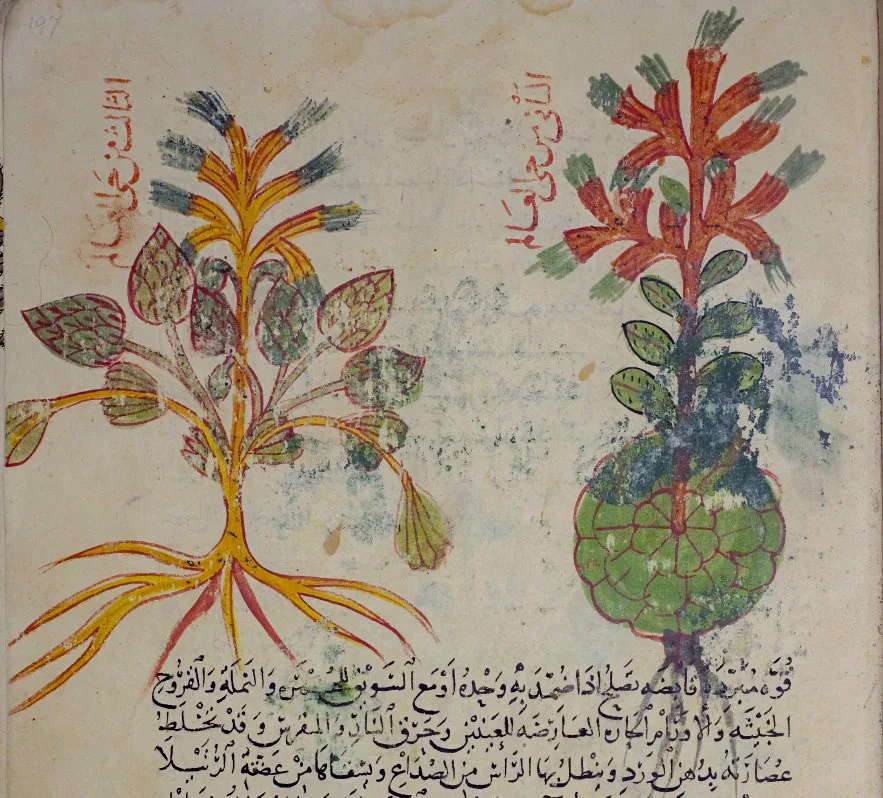 197
الثاني من حي العالم
الثالث من حي العالم
قُوّه مُبَرِّدَه قابضه تصلح اذا ضُمّدَ بِهِ وَحْدهُ اوْ مَع السَّوِيْق للحمره وَالنملَه وَالقرُوح
الخَبيْثه وَالاورَام الحارّه العَارِضَه للعَينَيْن وَحَرق النَّارِ وَالنقرس وَقَدْ يخْلط
عصَارَتهُ بِدُهن الوَرد وَينطل بِهَا الرَّاسُ مِنَ الصُدَاع وَيسْقاهَا مَنْ عَضتهُ الرُّتَيْلَا